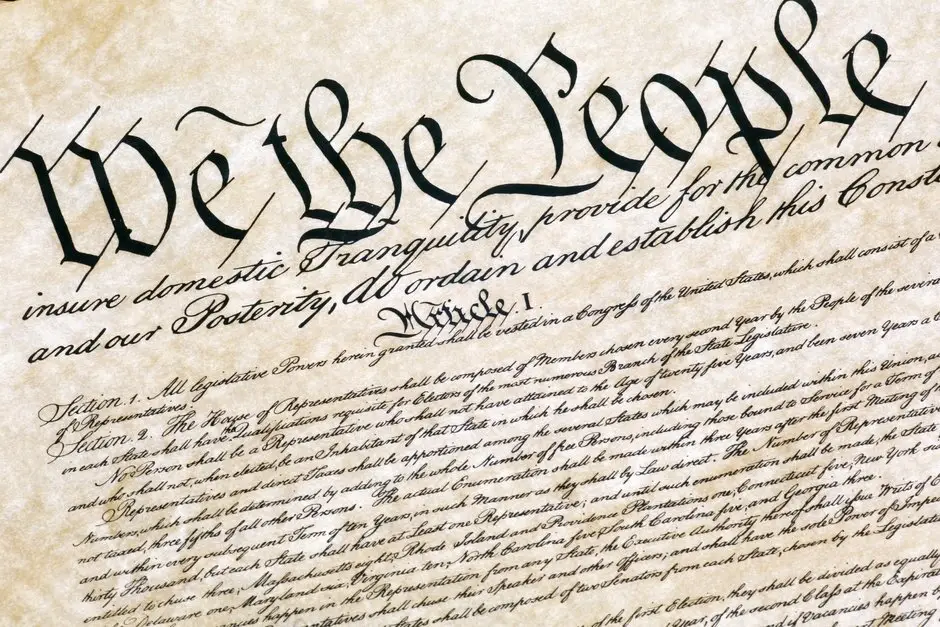 We the People
insure domestic Tranquility, provide for the common
and our Posterity, do ordain and establish this Const
Article. I.
Section. 1. All legislative Powers herein granted shall be vested in a Congress of the United States, which shall consist of a
of Representatives.
Section. 2. The House of Representatives shall be composed of Members chosen every second Year by the People of the severa
in each State shall have the Qualifications requisite for Electors of the most numerous Branch of the State Legislature.
No Person shall be a Representative who shall not have attained to the Age of twenty five Years, and been seven Years a C
and who shall not, when elected, be an Inhabitant of that State in which he shall be chosen.
Representatives and direct Taxes shall be apportioned among the several States which may be included within this Union, ac
Numbers, which shall be determined by adding to the whole Number of free Persons, including those bound to Service for a Term of
not taxed, three fifths of all other Persons. The actual Enumeration shall be made within three Years after the first Meeting of
and within every subsequent Term of ten Years, in such Manner as they shall by Law direct. The Number of Representative
thirty Thousand, but each State shall have at Least one Representative; and until such enumeration shall be made, the State
entitled to chuse three, Massachusetts eight, Rhode Island and Providence Plantations one, Connecticut five, New York six
Delaware one, Maryland six, Virginia ten, North Carolina five, South Carolina five, and Georgia three.
happen in the Representation from any State, the Executive Authority thereof shall issue Writs of
Representatives shall chuse their Speaker and other Officers; and shall have the sole Power of Imp
States shall be composed of two Senators from each State, chosen by the Legislat
of the first Election, they shall be divided as equally
Year, of the second Class at the Expirat
if Vacancies happen by
Meeting of